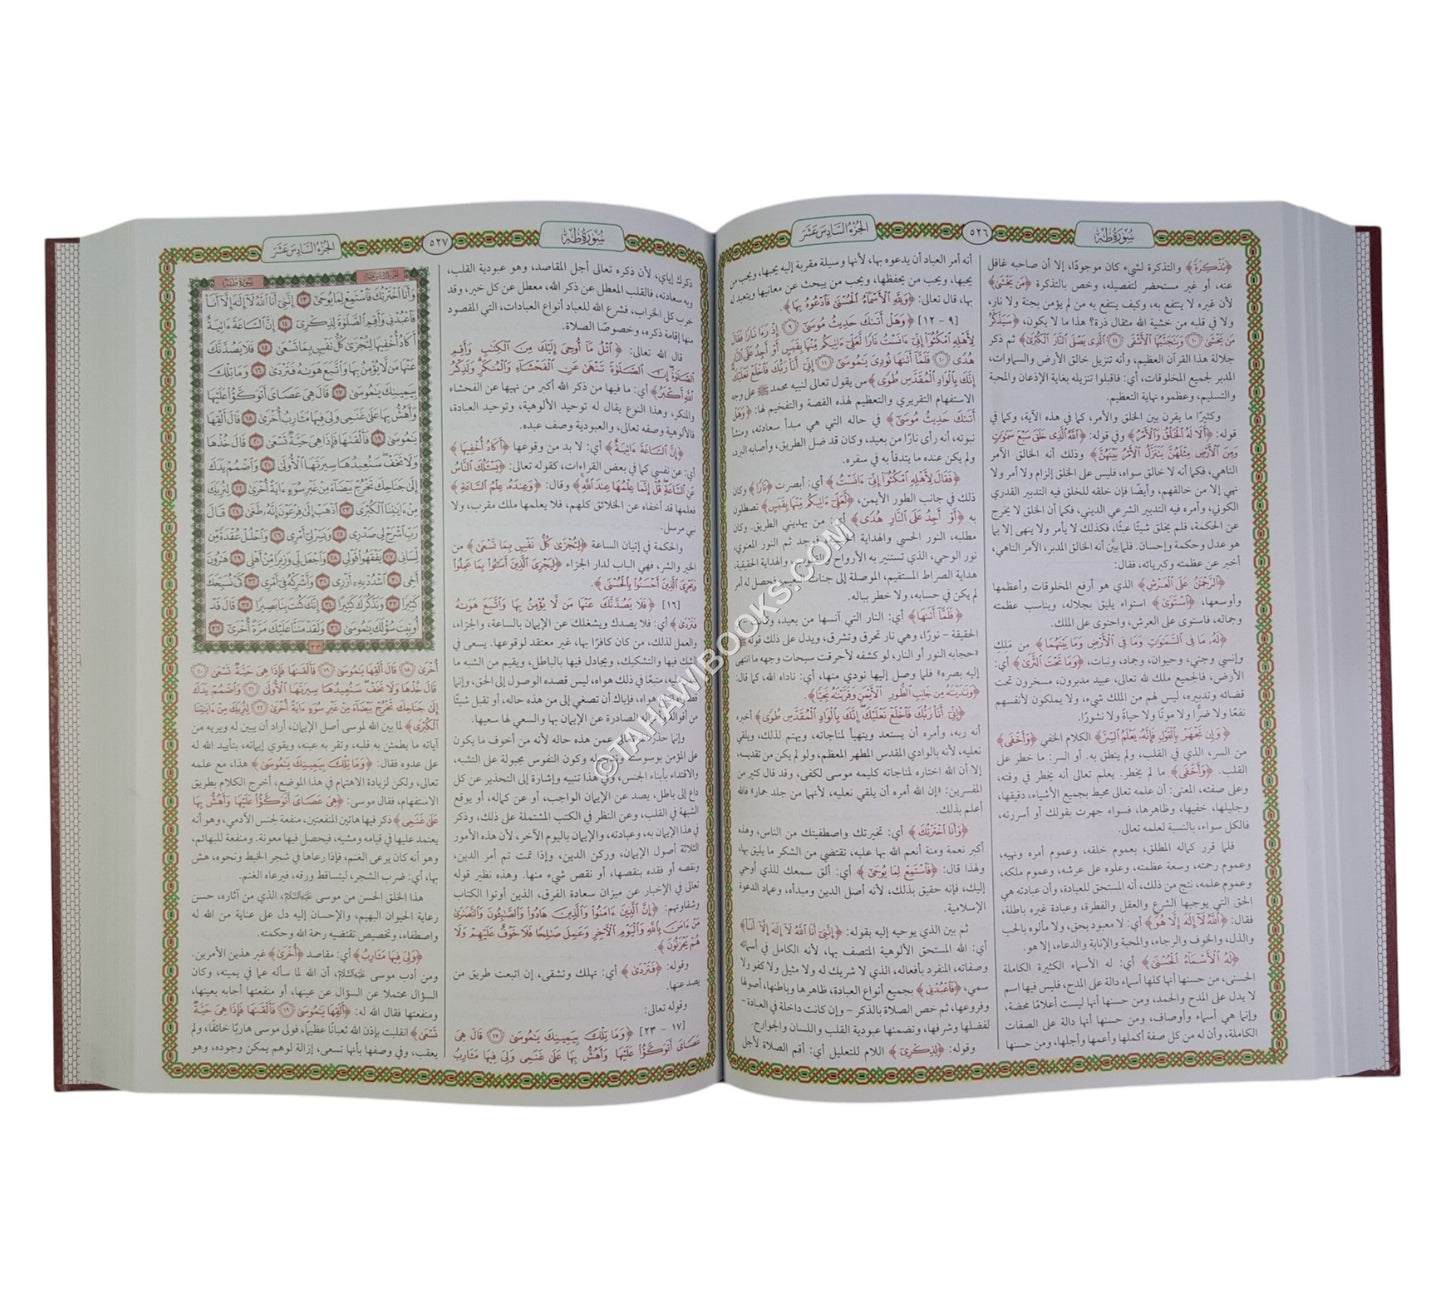 سُورَةُ طه
٥٢٦
الجُزءُ السَّادِسَ عَشَرَ
﴿تَذْكِرَةً﴾ والتذكرة لشيء كان موجودًا، إلا أن صاحبه غافل
عنه، أو غير مستحضر لتفصيله، وخص بالتذكرة ﴿مَن يَخْشَىٰ﴾
لأن غيره لا ينتفع به، وكيف ينتفع به من لم يؤمن بجنة ولا نار،
ولا في قلبه من خشية الله مثقال ذرة؟ هذا ما لا يكون، ﴿سَيَذَّكَّرُ
مَن يَخْشَىٰ ۝ وَيَتَجَنَّبُهَا ٱلْأَشْقَى ۝ ٱلَّذِى يَصْلَى ٱلنَّارَ ٱلْكُبْرَىٰ﴾ ثم ذكر
جلالة هذا القرآن العظيم، وأنه تنزيل خالق الأرض والسماوات،
المدبر لجميع المخلوقات، أي: فاقبلوا تنزيله بغاية الإذعان والمحبة
والتسليم، وعظموه نهاية التعظيم.
وكثيرًا ما يقرن بين الخلق والأمر، كما في هذه الآية، وكما في
قوله: ﴿أَلَا لَهُ ٱلْخَلْقُ وَٱلْأَمْرُ﴾ وفي قوله: ﴿ٱللَّهُ ٱلَّذِى خَلَقَ سَبْعَ سَمَـٰوَٰتٍ
وَمِنَ ٱلْأَرْضِ مِثْلَهُنَّ يَتَنَزَّلُ ٱلْأَمْرُ بَيْنَهُنَّ﴾ وذلك أنه الخالق الآمر
الناهي، فكما أنه لا خالق سواه، فليس على الخلق إلزام ولا أمر ولا
نهي إلا من خالقهم، وأيضًا فإن خلقه للخلق فيه التدبير القدري
الكوني، وأمره فيه التدبير الشرعي الديني، فكما أن الخلق لا يخرج
عن الحكمة، فلم يخلق شيئًا عبثًا، فكذلك لا يأمر ولا ينهى إلا بما
هو عدل وحكمة وإحسان. فلما بيَّن أنه الخالق المدبر، الآمر الناهي،
أخبر عن عظمته وكبريائه، فقال:
﴿ٱلرَّحْمَـٰنُ عَلَى ٱلْعَرْشِ﴾ الذي هو أرفع المخلوقات وأعظمها
وأوسعها، ﴿ٱسْتَوَىٰ﴾ استواء يليق بجلاله، ويناسب عظمته
وجماله، فاستوى على العرش، واحتوى على الملك.
﴿لَهُۥ مَا فِى ٱلسَّمَـٰوَٰتِ وَمَا فِى ٱلْأَرْضِ وَمَا بَيْنَهُمَا﴾ من مَلَكٍ
وإنسي وجني، وحيوان، وجماد، ونبات، ﴿وَمَا تَحْتَ ٱلثَّرَىٰ﴾ أي:
الأرض، فالجميع ملك لله تعالى، عبيد مدبرون، مسخرون تحت
قضائه وتدبيره، ليس لهم من الملك شيء، ولا يملكون لأنفسهم
نفعًا ولا ضرًّا ولا موتًا ولا حياةً ولا نشورًا.
﴿وَإِن تَجْهَرْ بِٱلْقَوْلِ فَإِنَّهُۥ يَعْلَمُ ٱلسِّرَّ﴾ الكلام الخفي ﴿وَأَخْفَى﴾
من السر، الذي في القلب، ولم ينطق به. أو السر: ما خطر على
القلب. ﴿وَأَخْفَى﴾ ما لم يخطر. يعلم تعالى أنه يخطر في وقته،
وعلى صفته، المعنى: أن علمه تعالى محيط بجميع الأشياء، دقيقها،
وجليلها، خفيها، وظاهرها، فسواء جهرت بقولك أو أسررته،
فالكل سواء، بالنسبة لعلمه تعالى.
فلما قرر كماله المطلق، بعموم خلقه، وعموم أمره ونهيه،
وعموم رحمته، وسعة عظمته، وعلوه على عرشه، وعموم ملكه،
وعموم علمه، نتج من ذلك، أنه المستحق للعبادة، وأن عبادته هي
الحق التي يوجبها الشرع والعقل والفطرة، وعبادة غيره باطلة،
فقال: ﴿ٱللَّهُ لَآ إِلَـٰهَ إِلَّا هُوَ﴾ أي: لا معبود بحق، ولا مألوه بالحب
والذل، والخوف والرجاء، والمحبة والإنابة والدعاء، إلا هو.
﴿لَهُ ٱلْأَسْمَآءُ ٱلْحُسْنَىٰ﴾ أي: له الأسماء الكثيرة الكاملة
الحسنى، من حسنها أنها كلها أسماء دالة على المدح، فليس فيها اسم
لا يدل على المدح والحمد، ومن حسنها أنها ليست أعلامًا محضة،
وإنما هي أسماء وأوصاف، ومن حسنها أنها دالة على الصفات
الكاملة، وأن له من كل صفة أكملها وأعمها وأجلها، ومن حسنها
أنه أمر العباد أن يدعوه بها، لأنها وسيلة مقربة إليه يحبها، ويحب من
يحبها، ويحب من يحفظها، ويحب من يبحث عن معانيها ويتعبد له
بها، قال تعالى: ﴿وَلِلَّهِ ٱلْأَسْمَآءُ ٱلْحُسْنَىٰ فَٱدْعُوهُ بِهَا﴾.
[٩ - ١٢] ﴿وَهَلْ أَتَىٰكَ حَدِيثُ مُوسَىٰٓ ۝ إِذْ رَءَا نَارًا فَقَالَ
لِأَهْلِهِ ٱمْكُثُوٓا۟ إِنِّىٓ ءَانَسْتُ نَارًا لَّعَلِّىٓ ءَاتِيكُم مِّنْهَا بِقَبَسٍ أَوْ أَجِدُ عَلَى ٱلنَّارِ
هُدًى ۝ فَلَمَّآ أَتَىٰهَا نُودِىَ يَـٰمُوسَىٰٓ ۝ إِنِّىٓ أَنَا۠ رَبُّكَ فَٱخْلَعْ نَعْلَيْكَ
إِنَّكَ بِٱلْوَادِ ٱلْمُقَدَّسِ طُوًى﴾ يقول تعالى لنبيه محمد ﷺ على وجه
الاستفهام التقريري والتعظيم لهذه القصة والتفخيم لها: ﴿وَهَلْ
أَتَىٰكَ حَدِيثُ مُوسَىٰٓ﴾ في حاله التي هي مبدأ سعادته، ومنشأ
نبوته، أنه رأى نارًا من بعيد، وكان قد ضل الطريق، وأصابه البرد
ولم يكن عنده ما يتدفأ به في سفره.
﴿فَقَالَ لِأَهْلِهِ ٱمْكُثُوٓا۟ إِنِّىٓ ءَانَسْتُ﴾ أي: أبصرت ﴿نَارًا﴾ وكان
ذلك في جانب الطور الأيمن، ﴿لَّعَلِّىٓ ءَاتِيكُم مِّنْهَا بِقَبَسٍ﴾ تصطلون
به ﴿أَوْ أَجِدُ عَلَى ٱلنَّارِ هُدًى﴾ أي: من يهديني الطريق. وكان
مطلبه، النور الحسي والهداية فوجد ثم النور المعنوي،
نور الوحي، الذي تستنير به الأرواح والهداية الحقيقية،
هداية الصراط المستقيم، الموصلة إلى جنات فحصل له أمر
لم يكن في حسابه، ولا خطر بباله.
﴿فَلَمَّآ أَتَىٰهَا﴾ أي: النار التي آنسها من بعيد،
الحقيقة - نورًا، وهي نار تحرق وتشرق، ويدل على ذلك قوله
«حجابه النور أو النار، لو كشفه لأحرقت سبحات وجهه ما انتهى
إليه بصره» فلما وصل إليها نودي منها، أي: ناداه الله، كما قال:
﴿وَنَـٰدَيْنَـٰهُ مِن جَانِبِ ٱلطُّورِ ٱلْأَيْمَنِ وَقَرَّبْنَـٰهُ نَجِيًّا﴾.
﴿إِنِّىٓ أَنَا۠ رَبُّكَ فَٱخْلَعْ نَعْلَيْكَ إِنَّكَ بِٱلْوَادِ ٱلْمُقَدَّسِ طُوًى﴾ أخبره
أنه ربه، وأمره أن يستعد ويتهيأ لمناجاته، ويهتم لذلك، ويلقي
نعليه، لأنه بالوادي المقدس المطهر المعظم، ولو لم يكن من تقديسه،
إلا أن الله اختاره لمناجاته كليمه موسى لكفى، وقد قال كثير من
المفسرين: «إن الله أمره أن يلقي نعليه، لأنهما من جلد حمار» فالله
أعلم بذلك.
﴿وَأَنَا ٱخْتَرْتُكَ﴾ أي: تخيرتك واصطفيتك من الناس، وهذه
أكبر نعمة ومنة أنعم الله بها عليه، تقتضي من الشكر ما يليق بها،
ولهذا قال: ﴿فَٱسْتَمِعْ لِمَا يُوحَىٰٓ﴾ أي: ألق سمعك للذي أوحي
إليك، فإنه حقيق بذلك، لأنه أصل الدين ومبدأه، وعماد الدعوة
الإسلامية.
ثم بين الذي يوحيه إليه بقوله: ﴿إِنَّنِىٓ أَنَا ٱللَّهُ لَآ إِلَـٰهَ إِلَّآ أَنَا﴾
أي: الله المستحق الألوهية المتصف بها، لأنه الكامل في أسمائه
وصفاته، المنفرد بأفعاله، الذي لا شريك له ولا مثيل ولا كفو ولا
سمي، ﴿فَٱعْبُدْنِى﴾ بجميع أنواع العبادة، ظاهرها وباطنها، أصولها
وفروعها، ثم خص الصلاة بالذكر - وإن كانت داخلة في العبادة -
لفضلها وشرفها، وتضمنها عبودية القلب واللسان والجوارح.
وقوله: ﴿لِذِكْرِىٓ﴾ اللام للتعليل أي: أقم الصلاة لأجل
سُورَةُ طه
٥٢٧
الجُزءُ السَّادِسَ عَشَرَ
ذكرك إياي، لأن ذكره تعالى أجل المقاصد، وهو عبودية القلب،
وبه سعادته، فالقلب المعطل عن ذكر الله، معطل عن كل خير، وقد
خرب كل الخراب، فشرع الله للعباد أنواع العبادات، التي المقصود
منها إقامة ذكره، وخصوصًا الصلاة.
قال الله تعالى: ﴿ٱتْلُ مَآ أُوحِىَ إِلَيْكَ مِنَ ٱلْكِتَـٰبِ وَأَقِمِ
ٱلصَّلَوٰةَ إِنَّ ٱلصَّلَوٰةَ تَنْهَىٰ عَنِ ٱلْفَحْشَآءِ وَٱلْمُنكَرِ وَلَذِكْرُ
ٱللَّهِ أَكْبَرُ﴾ أي: ما فيها من ذكر الله أكبر من نهيها عن الفحشاء
والمنكر، وهذا النوع يقال له توحيد الألوهية، وتوحيد العبادة،
فالألوهية وصفه تعالى، والعبودية وصف عبده.
﴿إِنَّ ٱلسَّاعَةَ ءَاتِيَةٌ﴾ أي: لا بد من وقوعها ﴿أَكَادُ أُخْفِيهَا﴾
أي: عن نفسي كما في بعض القراءات، كقوله تعالى: ﴿يَسْـَٔلُكَ ٱلنَّاسُ
عَنِ ٱلسَّاعَةِ قُلْ إِنَّمَا عِلْمُهَا عِندَ ٱللَّهِ﴾ وقال: ﴿وَعِندَهُۥ عِلْمُ ٱلسَّاعَةِ﴾
فعلمها قد أخفاه عن الخلائق كلهم، فلا يعلمها ملك مقرب، ولا
نبي مرسل.
والحكمة في إتيان الساعة ﴿لِتُجْزَىٰ كُلُّ نَفْسٍۭ بِمَا تَسْعَىٰ﴾ من
الخير والشر، فهي الباب لدار الجزاء ﴿لِيَجْزِىَ ٱلَّذِينَ أَسَـٰٓـُٔوا۟ بِمَا عَمِلُوا۟
وَيَجْزِىَ ٱلَّذِينَ أَحْسَنُوا۟ بِٱلْحُسْنَى﴾.
[١٦] ﴿فَلَا يَصُدَّنَّكَ عَنْهَا مَن لَّا يُؤْمِنُ بِهَا وَٱتَّبَعَ هَوَىٰهُ
فَتَرْدَىٰ﴾ أي: فلا يصدك ويشغلك عن الإيمان بالساعة، والجزاء،
والعمل لذلك، من كان كافرًا بها، غير معتقد لوقوعها. يسعى في
الشك فيها والتشكيك، ويجادل فيها بالباطل، ويقيم من الشبه ما
يقدر عليه، متبعًا في ذلك هواه، ليس قصده الوصول إلى الحق، وإنما
هواه، فإياك أن تصغي إلى من هذه حاله، أو تقبل شيئًا
من أقواله الصادرة عن الإيمان بها والسعي لها سعيها.
وإنما حذر تعالى عمن هذه حاله لأنه من أخوف ما يكون
على المؤمن بوسوسته وكون النفوس مجبولة على التشبه،
والاقتداء بأبناء الجنس، وفي هذا تنبيه وإشارة إلى التحذير عن كل
داع إلى باطل، يصد عن الإيمان الواجب، أو عن كماله، أو يوقع
الشبهة في القلب، وعن النظر في الكتب المشتملة على ذلك، وذكر
في هذا الإيمان به، وعبادته، والإيمان باليوم الآخر، لأن هذه الأمور
الثلاثة أصول الإيمان، وركن الدين، وإذا تمت تم أمر الدين،
ونقصه أو فقده بنقصها، أو نقص شيء منها. وهذه نظير قوله
تعالى في الإخبار عن ميزان سعادة الفرق، الذين أوتوا الكتاب
وشقاوتهم: ﴿إِنَّ ٱلَّذِينَ ءَامَنُوا۟ وَٱلَّذِينَ هَادُوا۟ وَٱلصَّـٰبِـُٔونَ وَٱلنَّصَـٰرَىٰ
مَنْ ءَامَنَ بِٱللَّهِ وَٱلْيَوْمِ ٱلْـَٔاخِرِ وَعَمِلَ صَـٰلِحًا فَلَا خَوْفٌ عَلَيْهِمْ وَلَا
هُمْ يَحْزَنُونَ﴾.
وقوله: ﴿فَتَرْدَىٰ﴾ أي: تهلك وتشقى، إن اتبعت طريق من
يصد عنها.
وقوله تعالى:
[١٧ - ٢٣] ﴿وَمَا تِلْكَ بِيَمِينِكَ يَـٰمُوسَىٰ ۝ قَالَ هِىَ
عَصَاىَ أَتَوَكَّؤُا۟ عَلَيْهَا وَأَهُشُّ بِهَا عَلَىٰ غَنَمِى وَلِىَ فِيهَا مَـَٔارِبُ
وَأَنَا ٱخْتَرْتُكَ فَٱسْتَمِعْ لِمَا يُوحَىٰٓ ١٣ إِنَّنِىٓ أَنَا ٱللَّهُ لَآ إِلَـٰهَ إِلَّآ أَنَا۠
فَٱعْبُدْنِى وَأَقِمِ ٱلصَّلَوٰةَ لِذِكْرِىٓ ١٤ إِنَّ ٱلسَّاعَةَ ءَاتِيَةٌ
أَكَادُ أُخْفِيهَا لِتُجْزَىٰ كُلُّ نَفْسٍۭ بِمَا تَسْعَىٰ ١٥ فَلَا يَصُدَّنَّكَ
عَنْهَا مَن لَّا يُؤْمِنُ بِهَا وَٱتَّبَعَ هَوَىٰهُ فَتَرْدَىٰ ١٦ وَمَا تِلْكَ
بِيَمِينِكَ يَـٰمُوسَىٰ ١٧ قَالَ هِىَ عَصَاىَ أَتَوَكَّؤُا۟ عَلَيْهَا
وَأَهُشُّ بِهَا عَلَىٰ غَنَمِى وَلِىَ فِيهَا مَـَٔارِبُ أُخْرَىٰ ١٨ قَالَ أَلْقِهَا
يَـٰمُوسَىٰ ١٩ فَأَلْقَىٰهَا فَإِذَا هِىَ حَيَّةٌ تَسْعَىٰ ٢٠ قَالَ خُذْهَا
وَلَا تَخَفْ سَنُعِيدُهَا سِيرَتَهَا ٱلْأُولَىٰ ٢١ وَٱضْمُمْ يَدَكَ
إِلَىٰ جَنَاحِكَ تَخْرُجْ بَيْضَآءَ مِنْ غَيْرِ سُوٓءٍ ءَايَةً أُخْرَىٰ ٢٢ لِنُرِيَكَ
مِنْ ءَايَـٰتِنَا ٱلْكُبْرَى ٢٣ ٱذْهَبْ إِلَىٰ فِرْعَوْنَ إِنَّهُۥ طَغَىٰ ٢٤ قَالَ
رَبِّ ٱشْرَحْ لِى صَدْرِى ٢٥ وَيَسِّرْ لِىٓ أَمْرِى ٢٦ وَٱحْلُلْ عُقْدَةً مِّن
لِّسَانِى ٢٧ يَفْقَهُوا۟ قَوْلِى ٢٨ وَٱجْعَل لِّى وَزِيرًا مِّنْ أَهْلِى ٢٩ هَـٰرُونَ
أَخِى ٣٠ ٱشْدُدْ بِهِۦٓ أَزْرِى ٣١ وَأَشْرِكْهُ فِىٓ أَمْرِى ٣٢ كَىْ نُسَبِّحَكَ
كَثِيرًا ٣٣ وَنَذْكُرَكَ كَثِيرًا ٣٤ إِنَّكَ كُنتَ بِنَا بَصِيرًا ٣٥ قَالَ قَدْ
أُوتِيتَ سُؤْلَكَ يَـٰمُوسَىٰ ٣٦ وَلَقَدْ مَنَنَّا عَلَيْكَ مَرَّةً أُخْرَىٰٓ ٣٧
أُخْرَىٰ ۝ قَالَ أَلْقِهَا يَـٰمُوسَىٰ ۝ فَأَلْقَىٰهَا فَإِذَا هِىَ حَيَّةٌ تَسْعَىٰ ۝
قَالَ خُذْهَا وَلَا تَخَفْ سَنُعِيدُهَا سِيرَتَهَا ٱلْأُولَىٰ ۝ وَٱضْمُمْ يَدَكَ
إِلَىٰ جَنَاحِكَ تَخْرُجْ بَيْضَآءَ مِنْ غَيْرِ سُوٓءٍ ءَايَةً أُخْرَىٰ ۝ لِنُرِيَكَ مِنْ ءَايَـٰتِنَا
ٱلْكُبْرَى﴾ لما بين الله لموسى أصل الإيمان، أراد أن يبين له ويريه من
آياته ما يطمئن به قلبه، وتقر به عينه، ويقوي إيمانه، بتأييد الله له
على عدوه فقال: ﴿وَمَا تِلْكَ بِيَمِينِكَ يَـٰمُوسَىٰ﴾ هذا، مع علمه
تعالى، ولكن لزيادة الاهتمام في هذا الموضع، أخرج الكلام بطريق
الاستفهام، فقال موسى: ﴿هِىَ عَصَاىَ أَتَوَكَّؤُا۟ عَلَيْهَا وَأَهُشُّ بِهَا
عَلَىٰ غَنَمِى﴾ ذكر فيها هاتين المنفعتين، منفعة لجنس الآدمي، وهو أنه
يعتمد عليها في قيامه ومشيه، فيحصل فيها معونة. ومنفعة للبهائم،
وهو أنه كان يرعى الغنم، فإذا رعاها في شجر الخبط ونحوه، هش
بها، أي: ضرب الشجر، ليتساقط ورقه، فيرعاه الغنم.
هذا الخلق الحسن من موسى عليه السلام، الذي من آثاره، حسن
رعاية الحيوان البهيم، والإحسان إليه دل على عناية من الله له
واصطفاء، وتخصيص تقتضيه رحمة الله وحكمته.
﴿وَلِىَ فِيهَا مَـَٔارِبُ﴾ أي: مقاصد ﴿أُخْرَىٰ﴾ غير هذين الأمرين.
ومن أدب موسى عليه السلام، أن الله لما سأله عما في يمينه، وكان
السؤال محتملا عن السؤال عن عينها، أو منفعتها أجابه بعينها،
ومنفعتها فقال الله له: ﴿أَلْقِهَا يَـٰمُوسَىٰ ۝ فَأَلْقَىٰهَا فَإِذَا هِىَ حَيَّةٌ
تَسْعَىٰ﴾ انقلبت بإذن الله ثعبانًا عظيمًا، فولى موسى هاربًا خائفًا، ولم
يعقب، وفي وصفها بأنها تسعى، إزالة لوهم يمكن وجوده، وهو
©TAHAWIBOOKS.COM